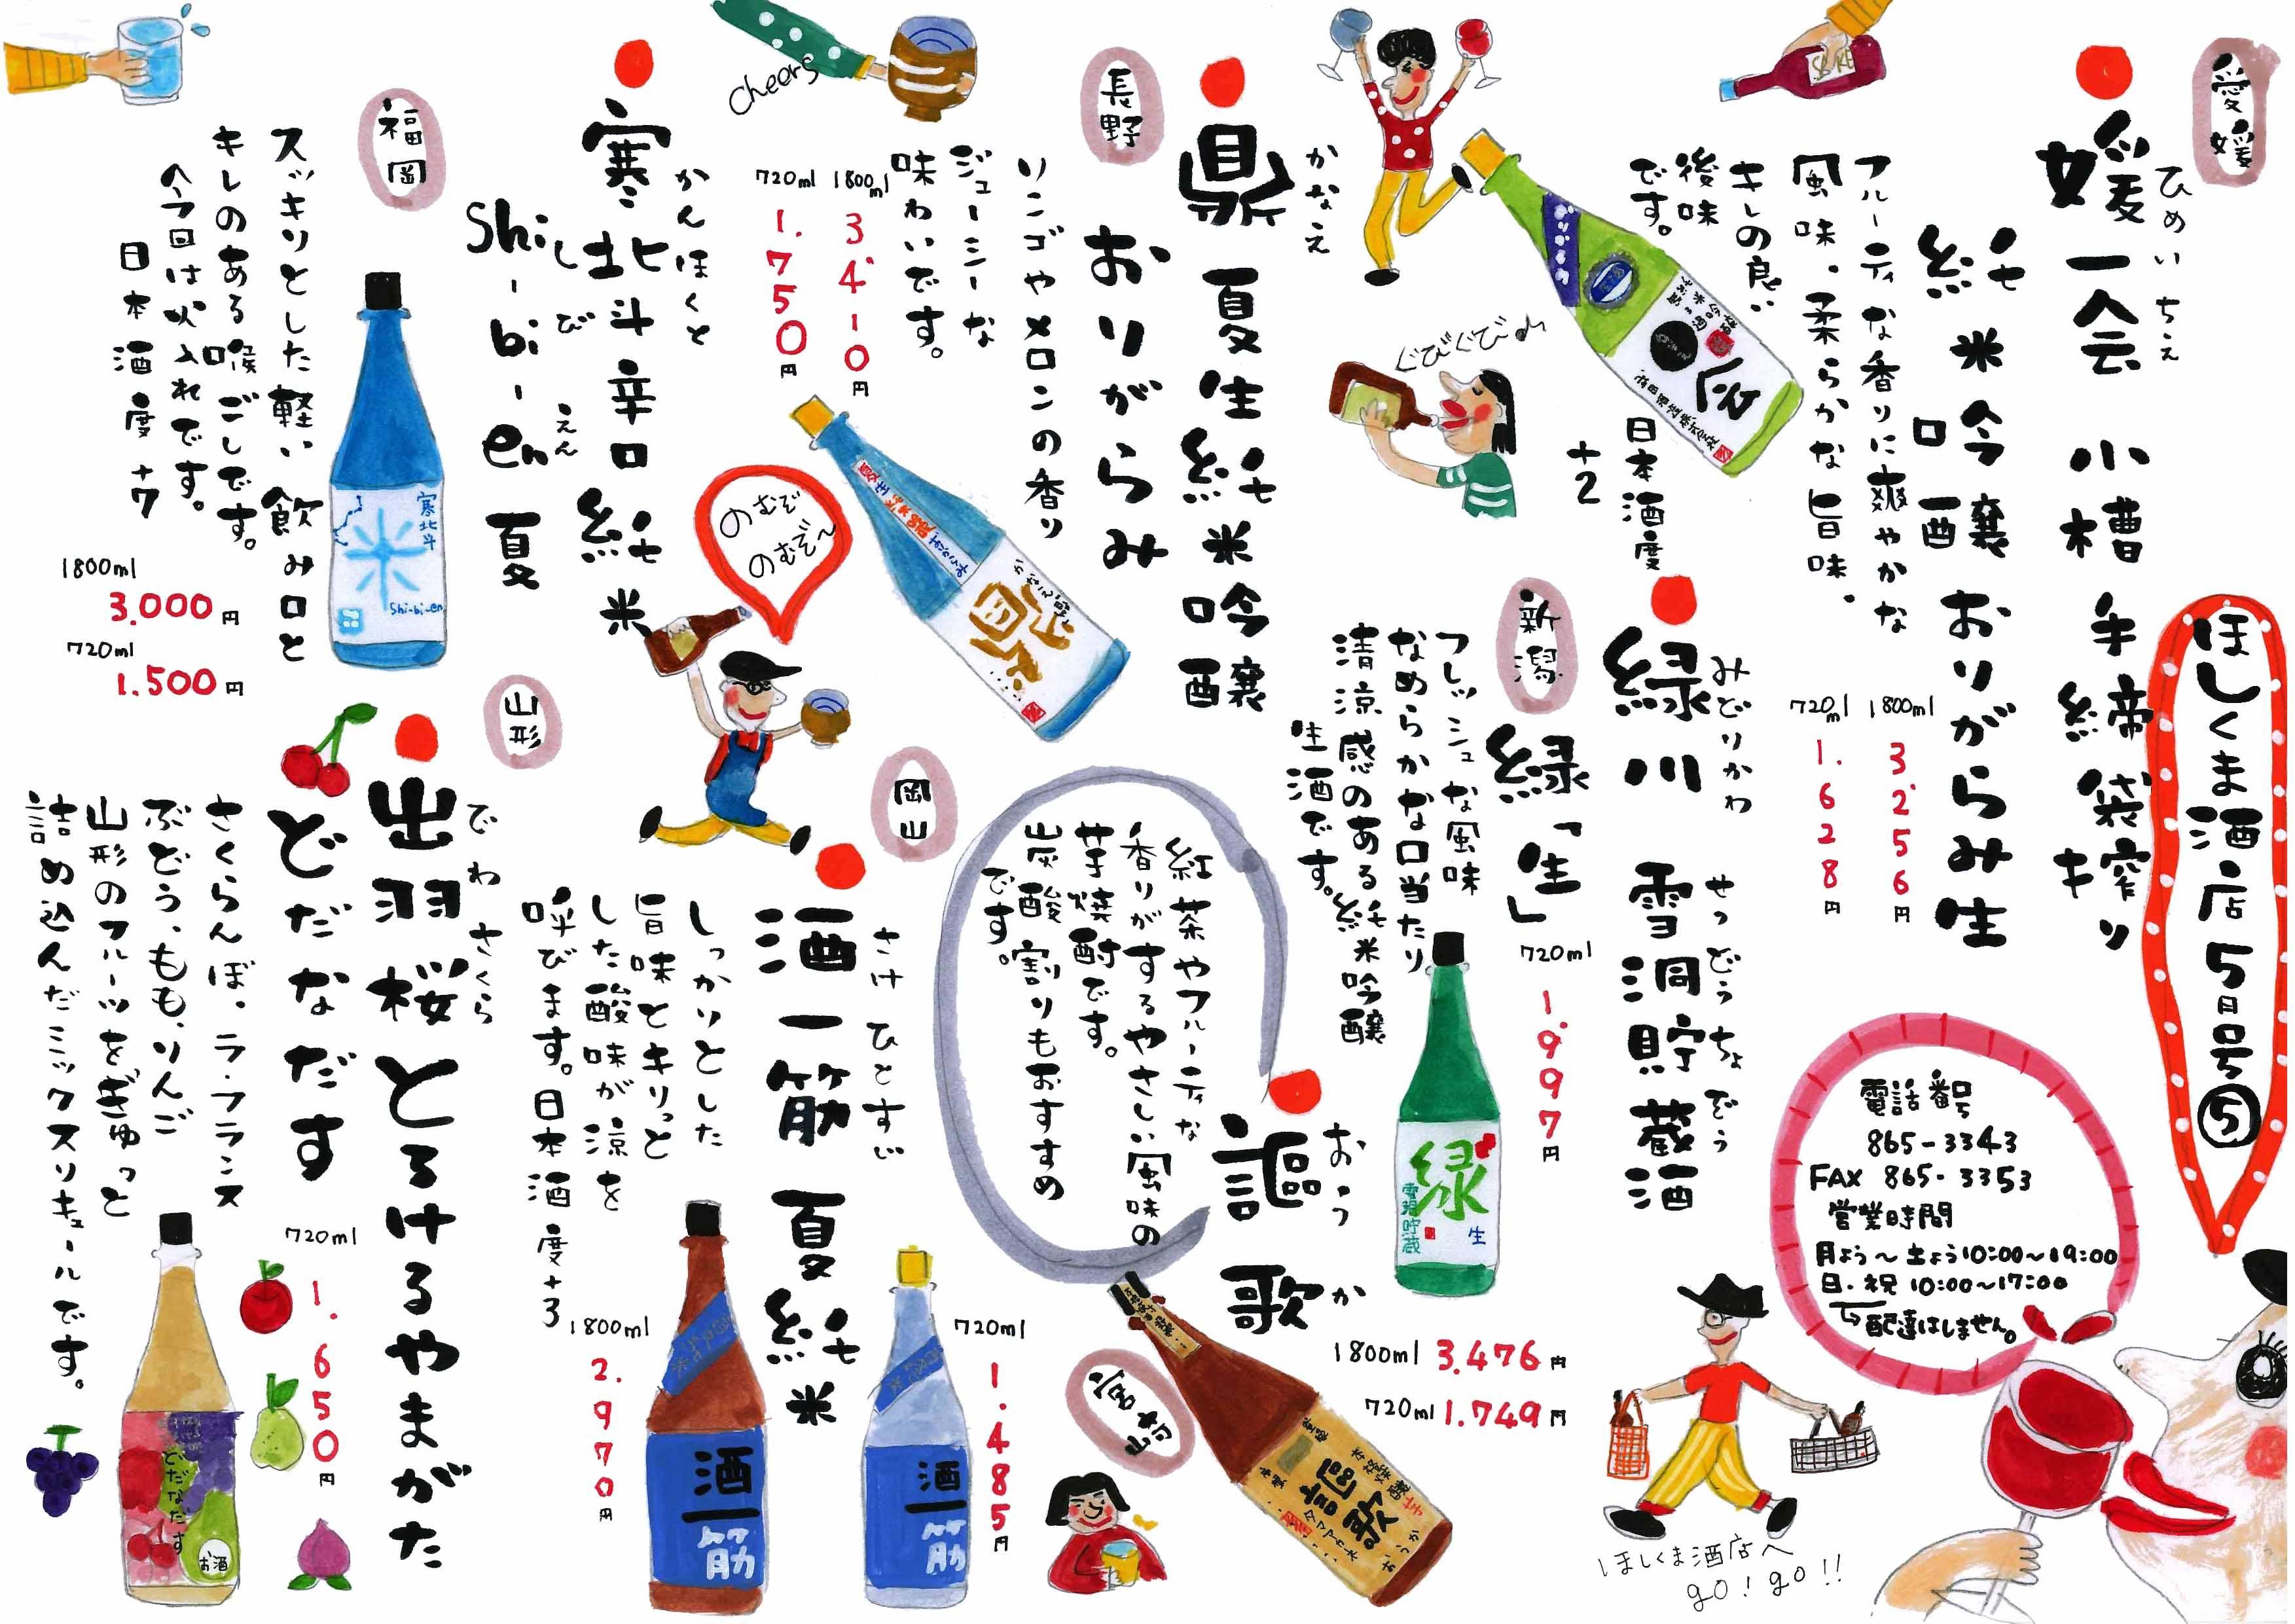 ほしくま酒店 5月号⑤
愛媛
媛一会 小槽 手締 袋搾り
ひめいちえ
純米吟醸 おりがらみ生
キ
フルーティな香りに爽やかな
風味。柔らかな旨味。
キレの良い
後味
です。
日本酒度
+2
1800ml 3.256円
720ml 1.628円
新潟
緑川 雪洞貯蔵酒
みどりかわ せつどうちょぞう
緑「生」
フレッシュな風味
なめらかな口当たり
清涼感のある純米吟醸
生酒です。
720ml 1.997円
緑
雪洞貯蔵
生
電話番号
865-3343
FAX 865-3353
営業時間
月よう〜土よう10:00〜19:00
日・祝 10:00〜17:00
配達はしません。
ほしくま酒店へ
go!go!!
SAKE
ぐびぐび♪
長野
鼎 夏生純米吟醸
かなえ
おりがらみ
リンゴやメロンの香り
ジューシーな
味わいです。
1800ml 3.410円
720ml 1.750円
かなえ
鼎
謳歌
おうか
宮崎
紅茶やフルーティな
香りがするやさしい風味の
芋焼酎です。
炭酸割りもおすすめ
です。
1800ml 3.476円
720ml 1.749円
謳歌
おうか
cheers
寒北斗 辛口 純米
かんほくと
shi-bi-en 夏
しびえん
福岡
スッキリとした軽い飲み口と
キレのある喉ごしです。
今回は火入れです。
日本酒度+7
1800ml
3.000円
720ml
1.500円
寒北斗
shi-bi-en
のむぞ
のむぞ〜
岡山
酒一筋 夏純米
さけひとすじ
しっかりとした
旨味とキリっと
した酸味が涼を
呼びます。日本酒度+3
1800ml 2.970円
720ml 1.485円
酒一筋
酒一筋
山形
出羽桜 とろけるやまがた
でわさくら
どだなだす
さくらんぼ、ラ・フランス
ぶどう、もも、りんご
山形のフルーツをぎゅっと
詰め込んだミックスリキュールです。
720ml 1.650円
どだなだす
お酒